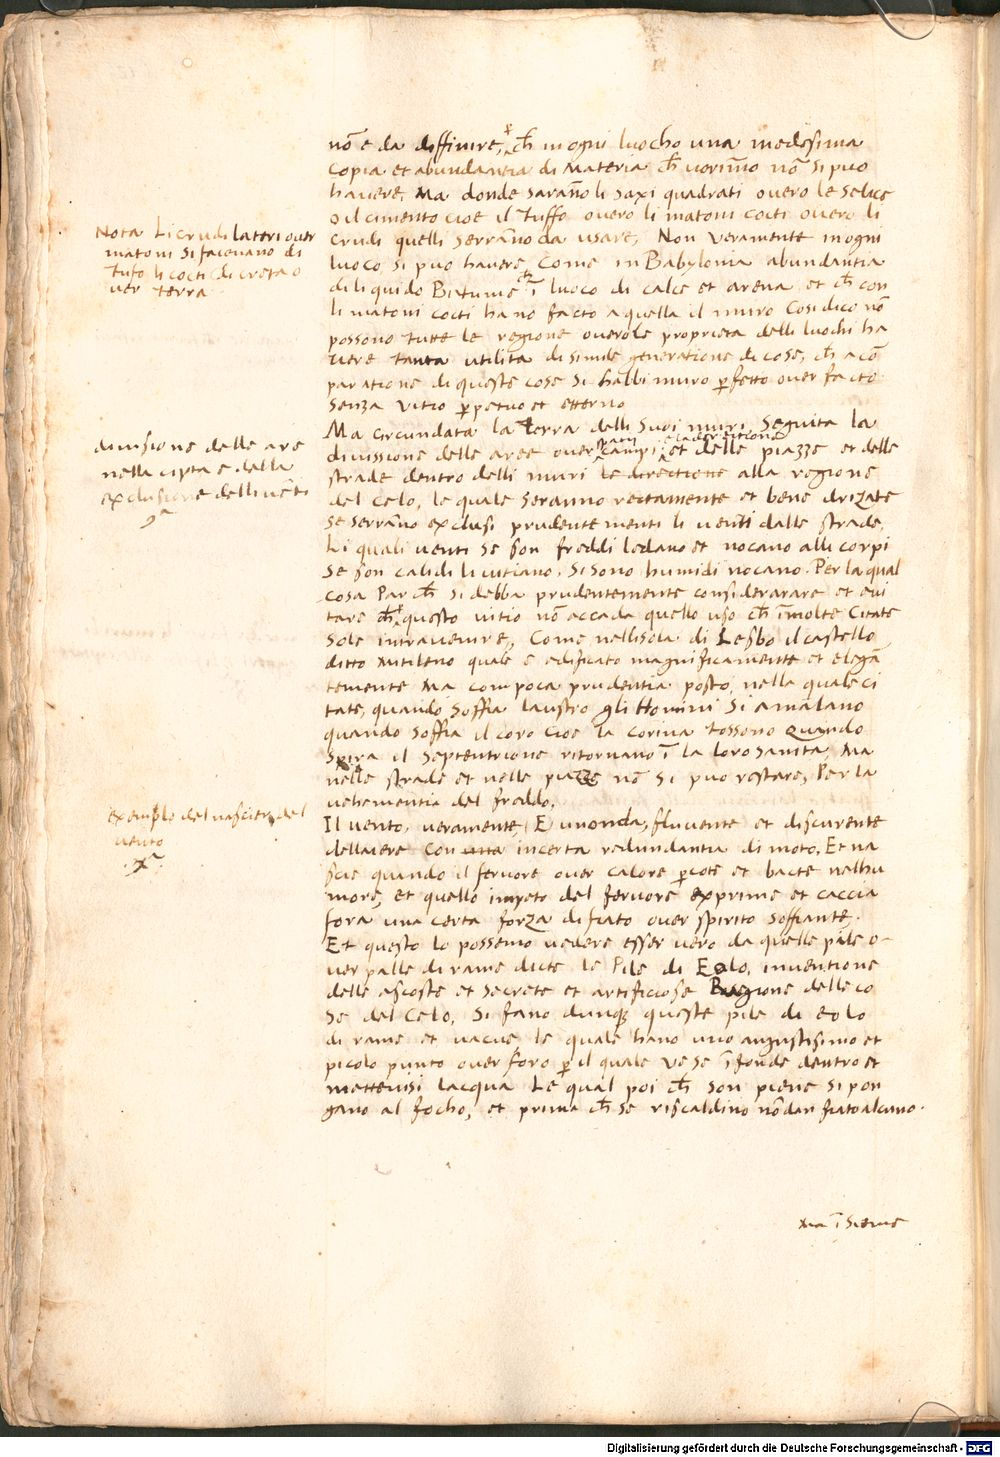 nō e da diffinire, ꝑ ch̄ in ogni luocho una medesima
copia et abundantia di Materia ch̄ uorimo nō si puo
havere, Ma donde sarano li saxi quadrati overo le selice
o il cimento cioe il Tuffo overo li matoni cocti overo li
crudi quelli serrano da usare, Non veramente in ogni
luoco si puo havere, Come in Babylonia abundantia
di liquido Bitume ī luoco di calce et arena et ch̄ con
li matoni cocti hano facto a quella il muro Cosi dico nō
possono tutte le regione overo le proprieta delli luochi ha
vere tanta utilita di simile generatione di cose, ch̄ a cō
paratione di queste cose si habbi muro ꝑfetto over facto
senza vitio ꝑpetuo et etterno
Nota Li crudi lateri over
matoni si facevano di
Tufo li cocti di creta o
ver terra
Ma circundata la terra delli suoi muri, Seguita la
divisione delle aree over campi et la derectione delle piazze et delle
strade dentro delli muri le directione alla regione
del Celo, le quale seranno rectamente et bene drizate
se serrano exclusi prudentementi li venti dalle strade,
Li quali venti se son freddi ledano et nocano alli corpi
se son calidi li vitiano, Si sono humidi nocano. Per la qual
cosa Par ch̄ si debba prudentemente considerarare et evi
tare ch̄ questo vitio nō accada quello uso ch̄ ī molte Citate
sole intravenire, Come nell isola di Lesbo il castello
ditto Mitileno quale e edificato magnificamente et elegā
temente Ma com poca prudentia posto, nella quale ci
tate, quando soffia laustro gli Homini si amalano
quando soffia il coro cioe la corina tossono Quando
Spira il septentrione ritornano ī la loro sanita, Ma
nelle strade et nelle piazze nō si puo restare, Per la
vehementia del freddo.
divisione delle are
nella cipta e della
exclusione delli vēti
Il vento, veramente, E un onda, fluvente et discurente
dellaiere Con una incerta redundantia di moto, Et na
scie quando il fervore over calore ꝑcote et bacte nelhu
more, et quello impeto del fervore exprime et caccia
fora una certa forza di fiato over spirito soffiante.
Et questo lo possemo vedere esser vero da quelle pile o-
ver palle di rame dicte le Pile di Eolo, inventione
delle ascoste et secrete et artificiose Ragione delle co
se del Celo, Si fano dunque queste pile di eolo
di rame et vacue, le quale hano uno angustisimo et
picolo punto over foro ꝑ il quale ve se īfonde dentro et
mettevisi lacqua Le qual poi ch̄ son piene si pon
gano al focho, et prima ch̄ se riscaldino nō dan fiato alcuno.
exemplo del nascier del
vento
Ma ī sieme
Digitalisierung gefördert durch die Deutsche Forschungsgemeinschaft - DFG